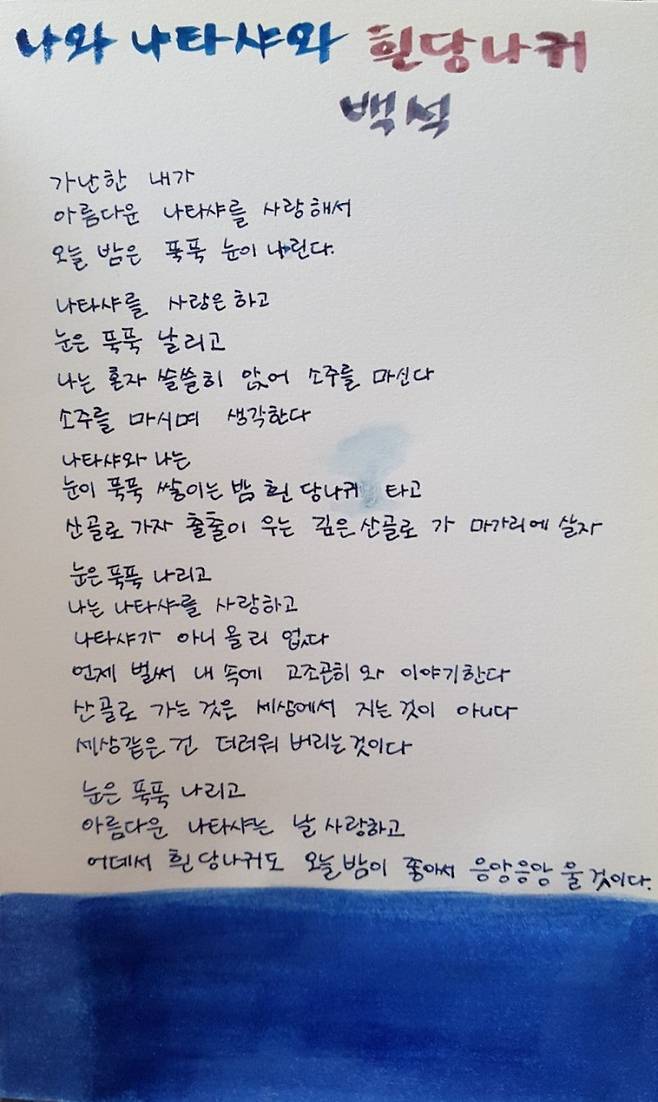 나와 나타샤와 흰당나귀
백석
가난한 내가
아름다운 나타샤를 사랑해서
오늘 밤은 푹푹 눈이 나린다.
나타샤를 사랑은하고
눈은 푹푹 날리고
나는 혼자 쓸쓸히 앉어 소주를 마신다
소주를 마시며 생각한다
나타샤와 나는
눈이 푹푹 쌓이는 밤 흰 당나귀 타고
산골로 가자 출출이 우는 깊은 산골로 가 마가리에 살자
눈은 푹푹 나리고
나는 나타샤를 사랑하고
나타샤가 아니 올 리 없다
언제 벌써 내 속에 고조곤히 와 이야기한다
산골로 가는 것은 세상에서 지는 것이 아니다
세상같은 건 더러워 버리는것이다
눈은 푹푹 나리고
아름다운 나타샤는 날 사랑하고
어데서 흰 당나귀도 오늘밤이 좋아서 응앙응앙 울 것이다.